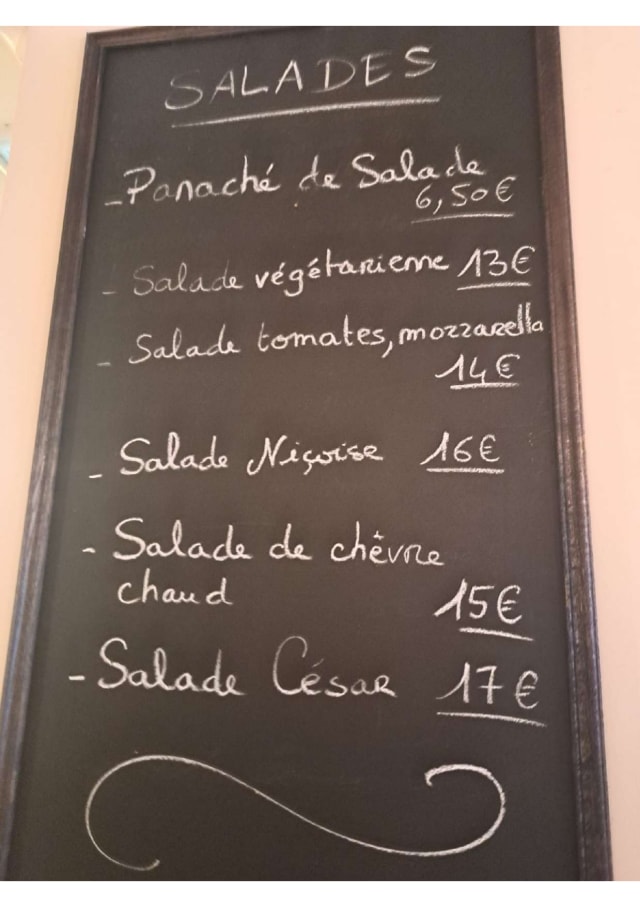 SALADES
- Panaché de Salade
6,50€
- Salade végétarienne 13€
- Salade tomates, mozzarella
14€
- Salade Niçoise 16€
- Salade de chèvre
chaud
15€
- Salade César 17€